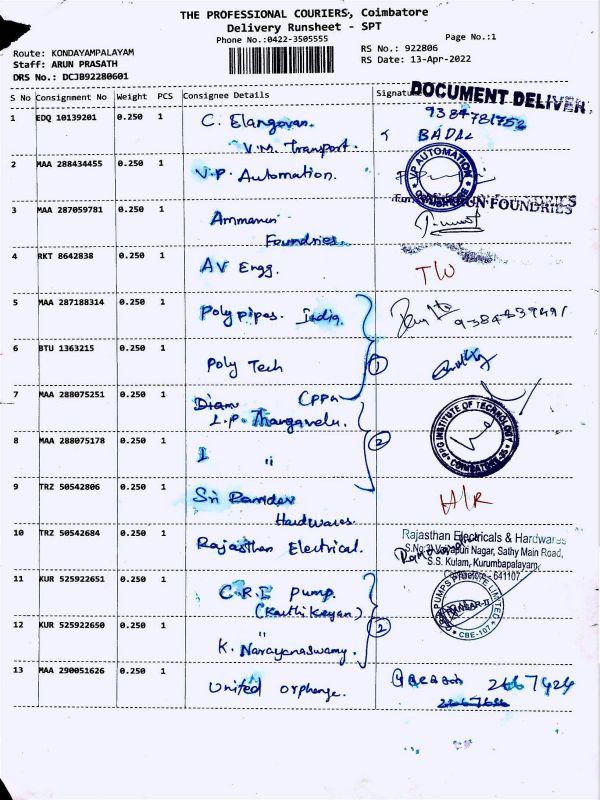 THE PROFESSIONAL COURIERS, Coimbatore
Delivery Runsheet - SPT
Phone No.:0422-3505555
Page No.:1
Route: KONDAYAMPALAYAM
RS No.: 922806
Staff: ARUN PRASATH
RS Date: 13-Apr-2022
DRS No.: DCJB92280601
S No Consignment No Weight PCS Consignee Details Signature
DOCUMENT DELIVER
1 EDQ 10139201 0.250 1 C. Elangovan. 9384781752
V.M. Transport. BADAL
2 MAA 288434455 0.250 1 V.P. Automation. VP AUTOMATION
3 MAA 287059781 0.250 1 Ammanun FOUNDRIES
Foundries.
4 RKT 8642838 0.250 1 AV Engg.
5 MAA 287188314 0.250 1 Poly pipes. India.
6 BTU 1363215 0.250 1 Poly Tech 1
7 MAA 288075251 0.250 1 CPPM
L.P. Thangavelu. PPG INSTITUTE OF TECHNOLOGY
COIMBATORE-35
8 MAA 288075178 0.250 1 " 2
9 TRZ 50542806 0.250 1 Sri Ramdev
Hardwares
10 TRZ 50542684 0.250 1 Rajasthan Electrical. Rajasthan Electricals & Hardwares
Nagar, Sathy Main Road,
S.S. Kulam, Kurumbapalayam,
Coimbatore-641107
11 KUR 525922651 0.250 1 C.R.I Pump. PUMPS PRIVATE LIMITED
(Karthikeyan) CBE-107
12 KUR 525922650 0.250 1 " 2
K. Narayanaswamy.
13 MAA 290051626 0.250 1 United orphange. 2667424